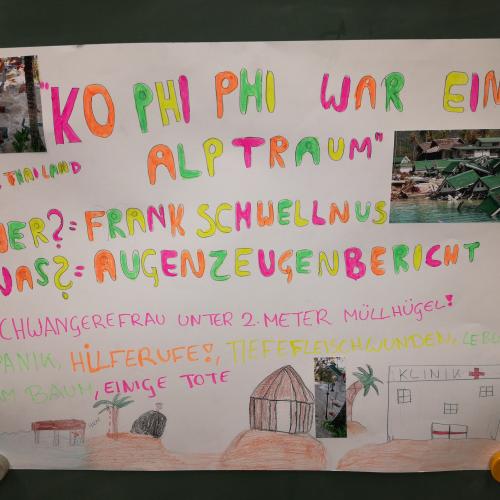 "KO PHI PHI WAR EIN
ALPTRAUM"
THAILAND
ER?:= FRANK SCHWELLNUS
WAS?= AUGENZEUGENBERICHT
CHWANGEREFRAU UNTER 2.METER MÜLLHÜGEL!
PANIK, HILFERUFE!, TIEFEFLEISCHWUNDEN, LEB
M BAUM, EINIGE TOTE
KLINIK